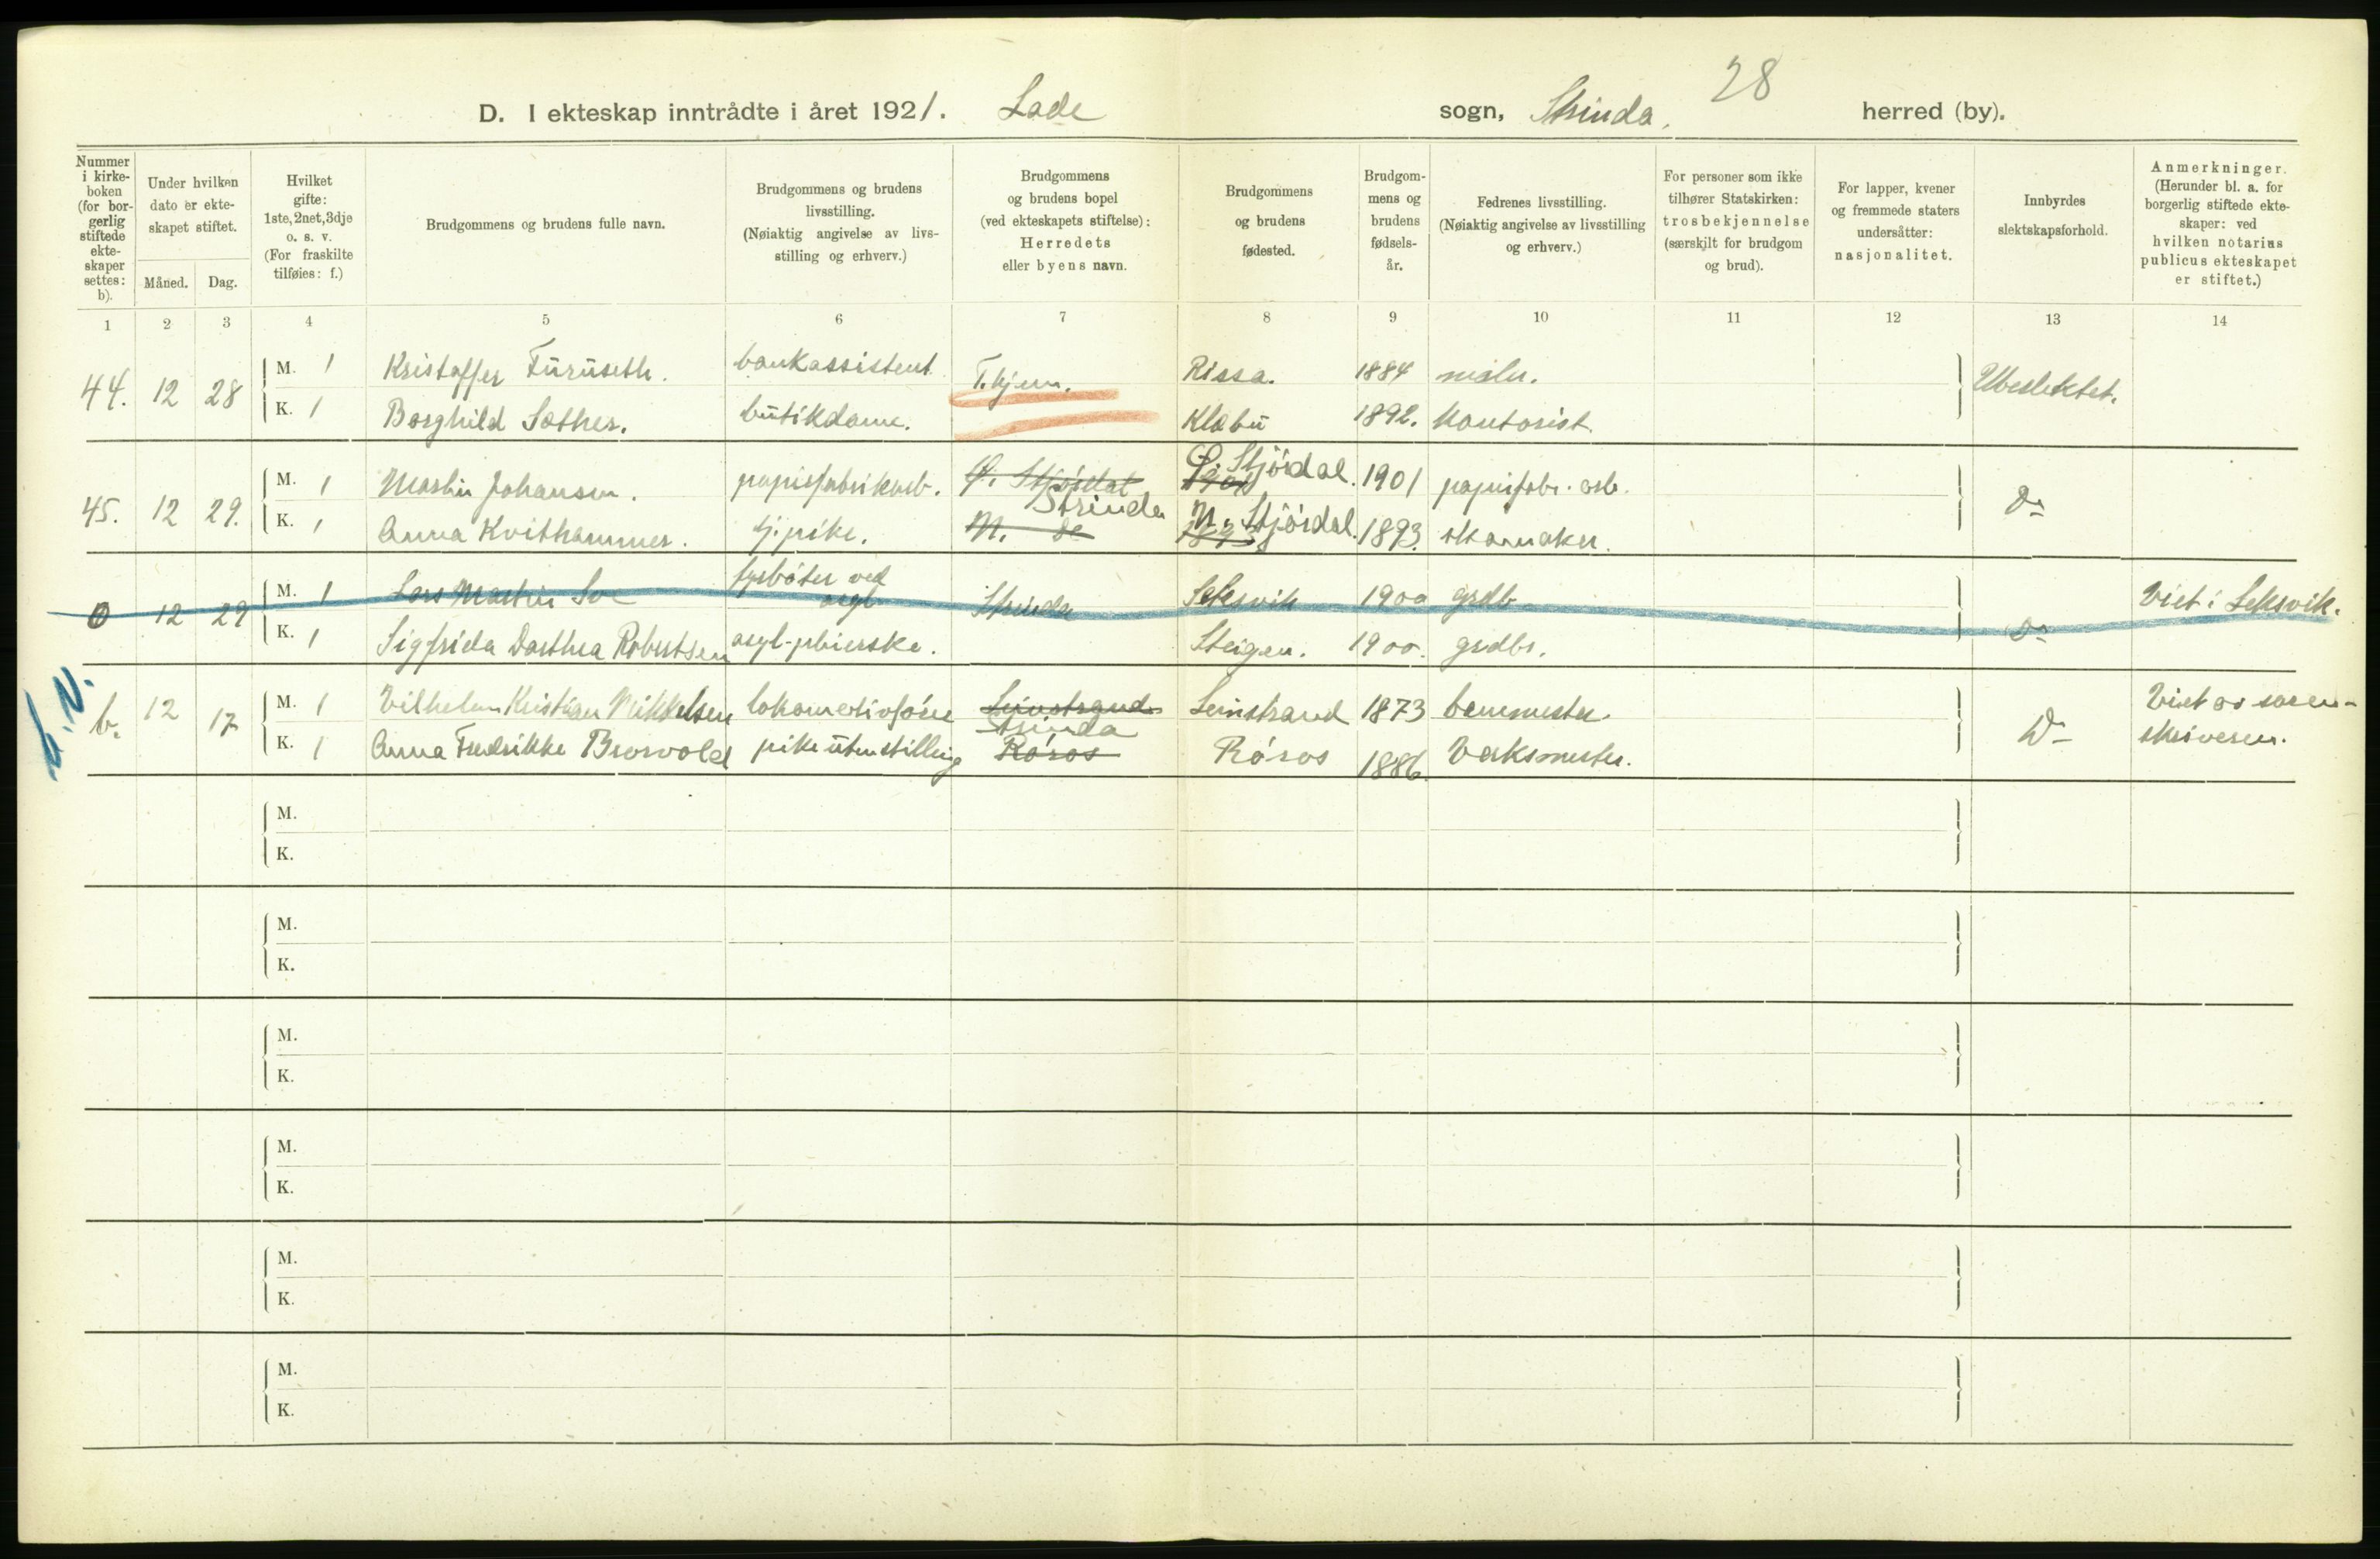 28
D. I ekteskap inntrådte i året 1921. Lade sogn, Strinda, herred (by).
Nummer i kirke-boken (for bor-gerlig stiftede ekte-skaper settes: b).
Under hvilken dato er ekte-skapet stiftet.
Måned. Dag.
Hvilket gifte: 1ste, 2net, 3dje o. s. v. (For fraskilte tilføies: f.)
Brudgommens og brudens fulle navn.
Brudgommens og brudens livsstilling. (Nøiaktig angivelse av livs-stilling og erhverv.)
Brudgommens og brudens bopel (ved ekteskapets stiftelse): Herredets eller byens navn.
Brudgommens og brudens fødested.
Brudgom-mens og brudens fødsels-år.
Fedrenes livsstilling. (Nøiaktig angivelse av livsstilling og erhverv.)
For personer som ikke tilhører Statskirken: trosbekjennelse (særskilt for brudgom og brud).
For lapper, kvener og fremmede staters undersåtter: nasjonalitet.
Innbyrdes slektskapsforhold.
Anmerkninger. (Herunder bl. a. for borgerlig stiftede ekte-skaper: ved hvilken notarius publicus ekteskapet er stiftet.)
1 2 3 4 5 6 7 8 9 10 11 12 13 14
44. 12 28 M. 1 Kristoffer Furuseth. bankassistent T.hjem. Rissa. 1884 Ubeslektet.
K. 1 Borghild Sæther. butikdame. Klæbu 1892. kontorist.
45. 12 29. M. 1 Martin Johansen. papirfabrikarb. Ø. Stjørdal Strinda Ø. Stjørdal. 1901 papirfabr. arb. Do
K. 1 Anna Kvithammer. tj.pike. N. do N. Stjørdal. 1893. skomaker.
0 12 29 M. 1 Lars Martin fyrbøter ved asyl Strinda Leksvik 1900 grdb. Do Viet i Leksvik.
K. 1 Sigfrida Dorthea Robertsen asyl-pleierske. Steigen. 1900. grdbr.
b. 12 17 M. 1 Vilhelm Kristian Mikkelsen lokomotivfører Leinstrand Strinda Leinstrand 1873 banemester. Do Viet av soren-
K. 1 Anna Fredrikke Brovold pike uten stilling Røros Røros 1886. Verksmester. skriveren.
M.
K.
M.
K.
M.
K.
M.
K.
M.
K.
M.
K.